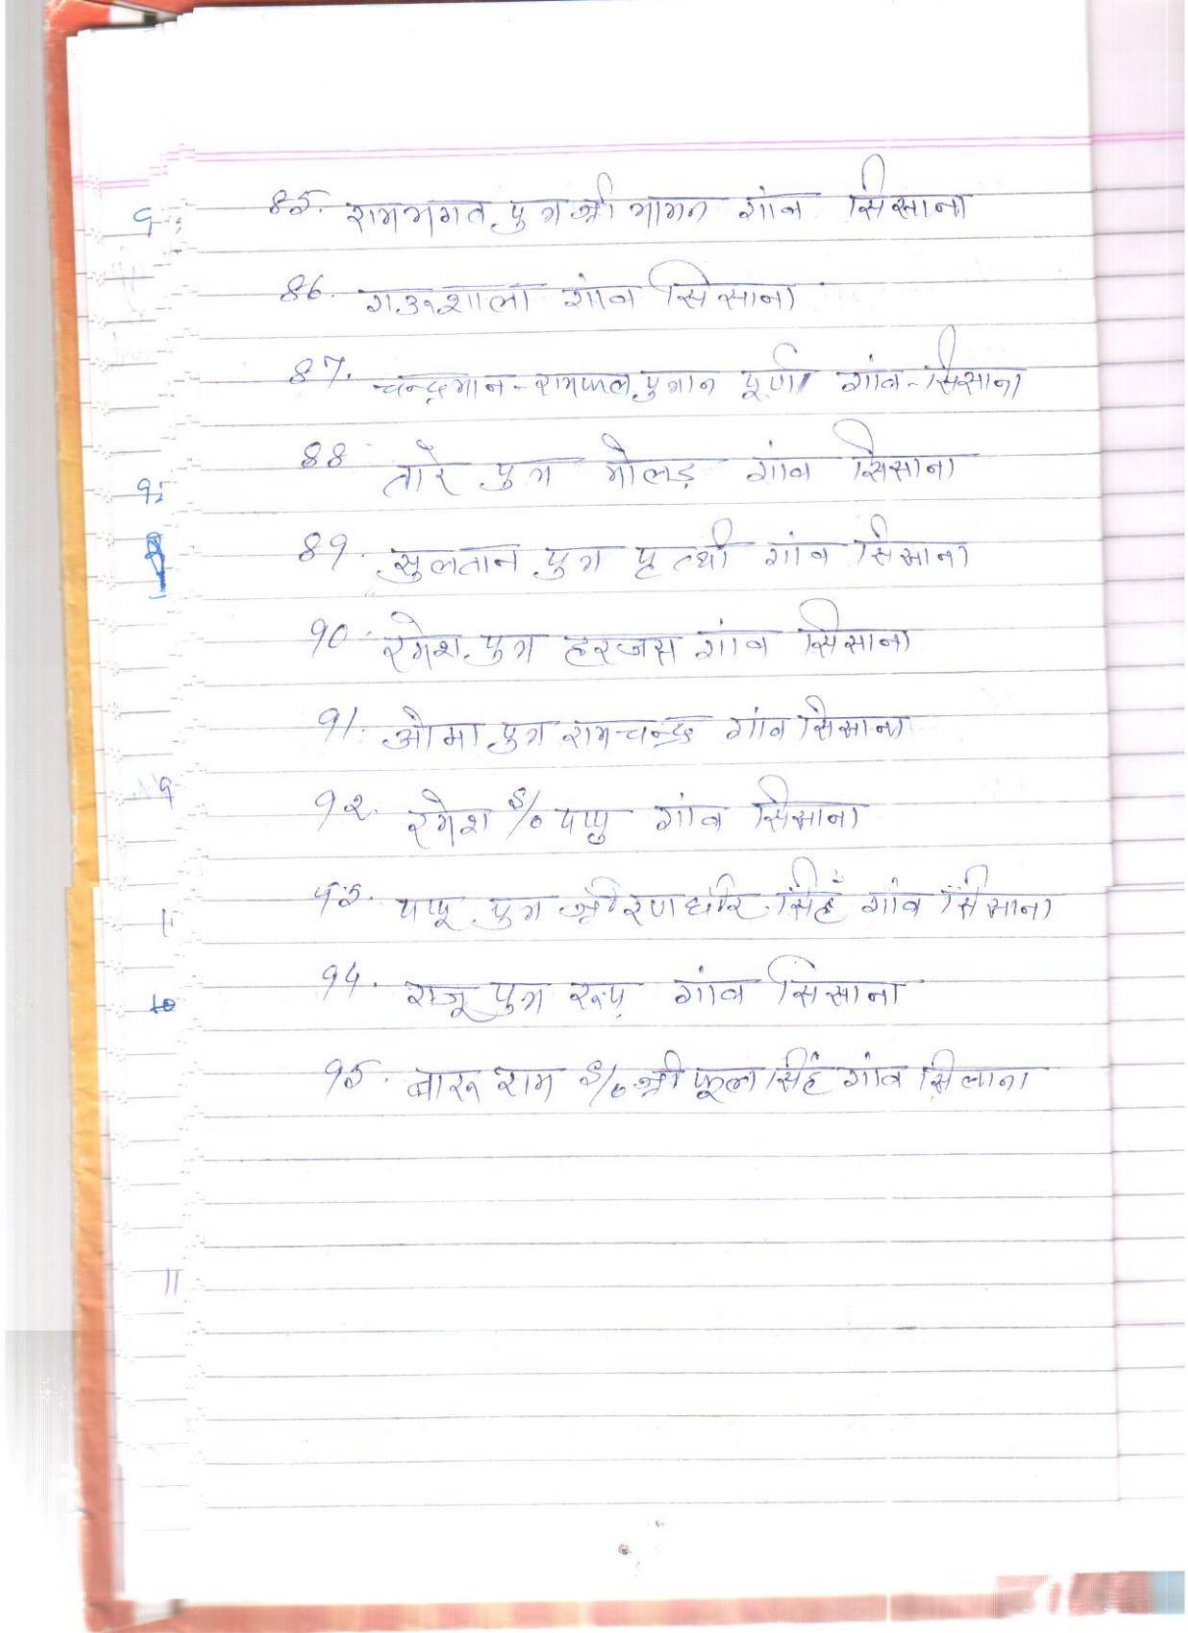 85. रामभगत पुत्र श्री मागन गांव सिसाना
86. गऊशाला गांव सिसाना
87. चन्द्रभान - रामफल पुत्रान पूर्ण गांव - सिसाना
88 तारे पुत्र मोलड़ गांव सिसाना
89. सुलतान पुत्र पृत्थी गांव सिसाना
90. रमेश पुत्र हरजस गांव सिसाना
91. ओमा पुत्र रामचन्द्र गांव सिसाना
92. रमेश S/o पप्पु गांव सिसाना
93. पप्पू पुत्र श्री रणधीर सिहँ गांव सिसाना
94. राजू पुत्र रूप गांव सिसाना
95. बारू राम S/o श्री फूल सिंह गांव सिलाना